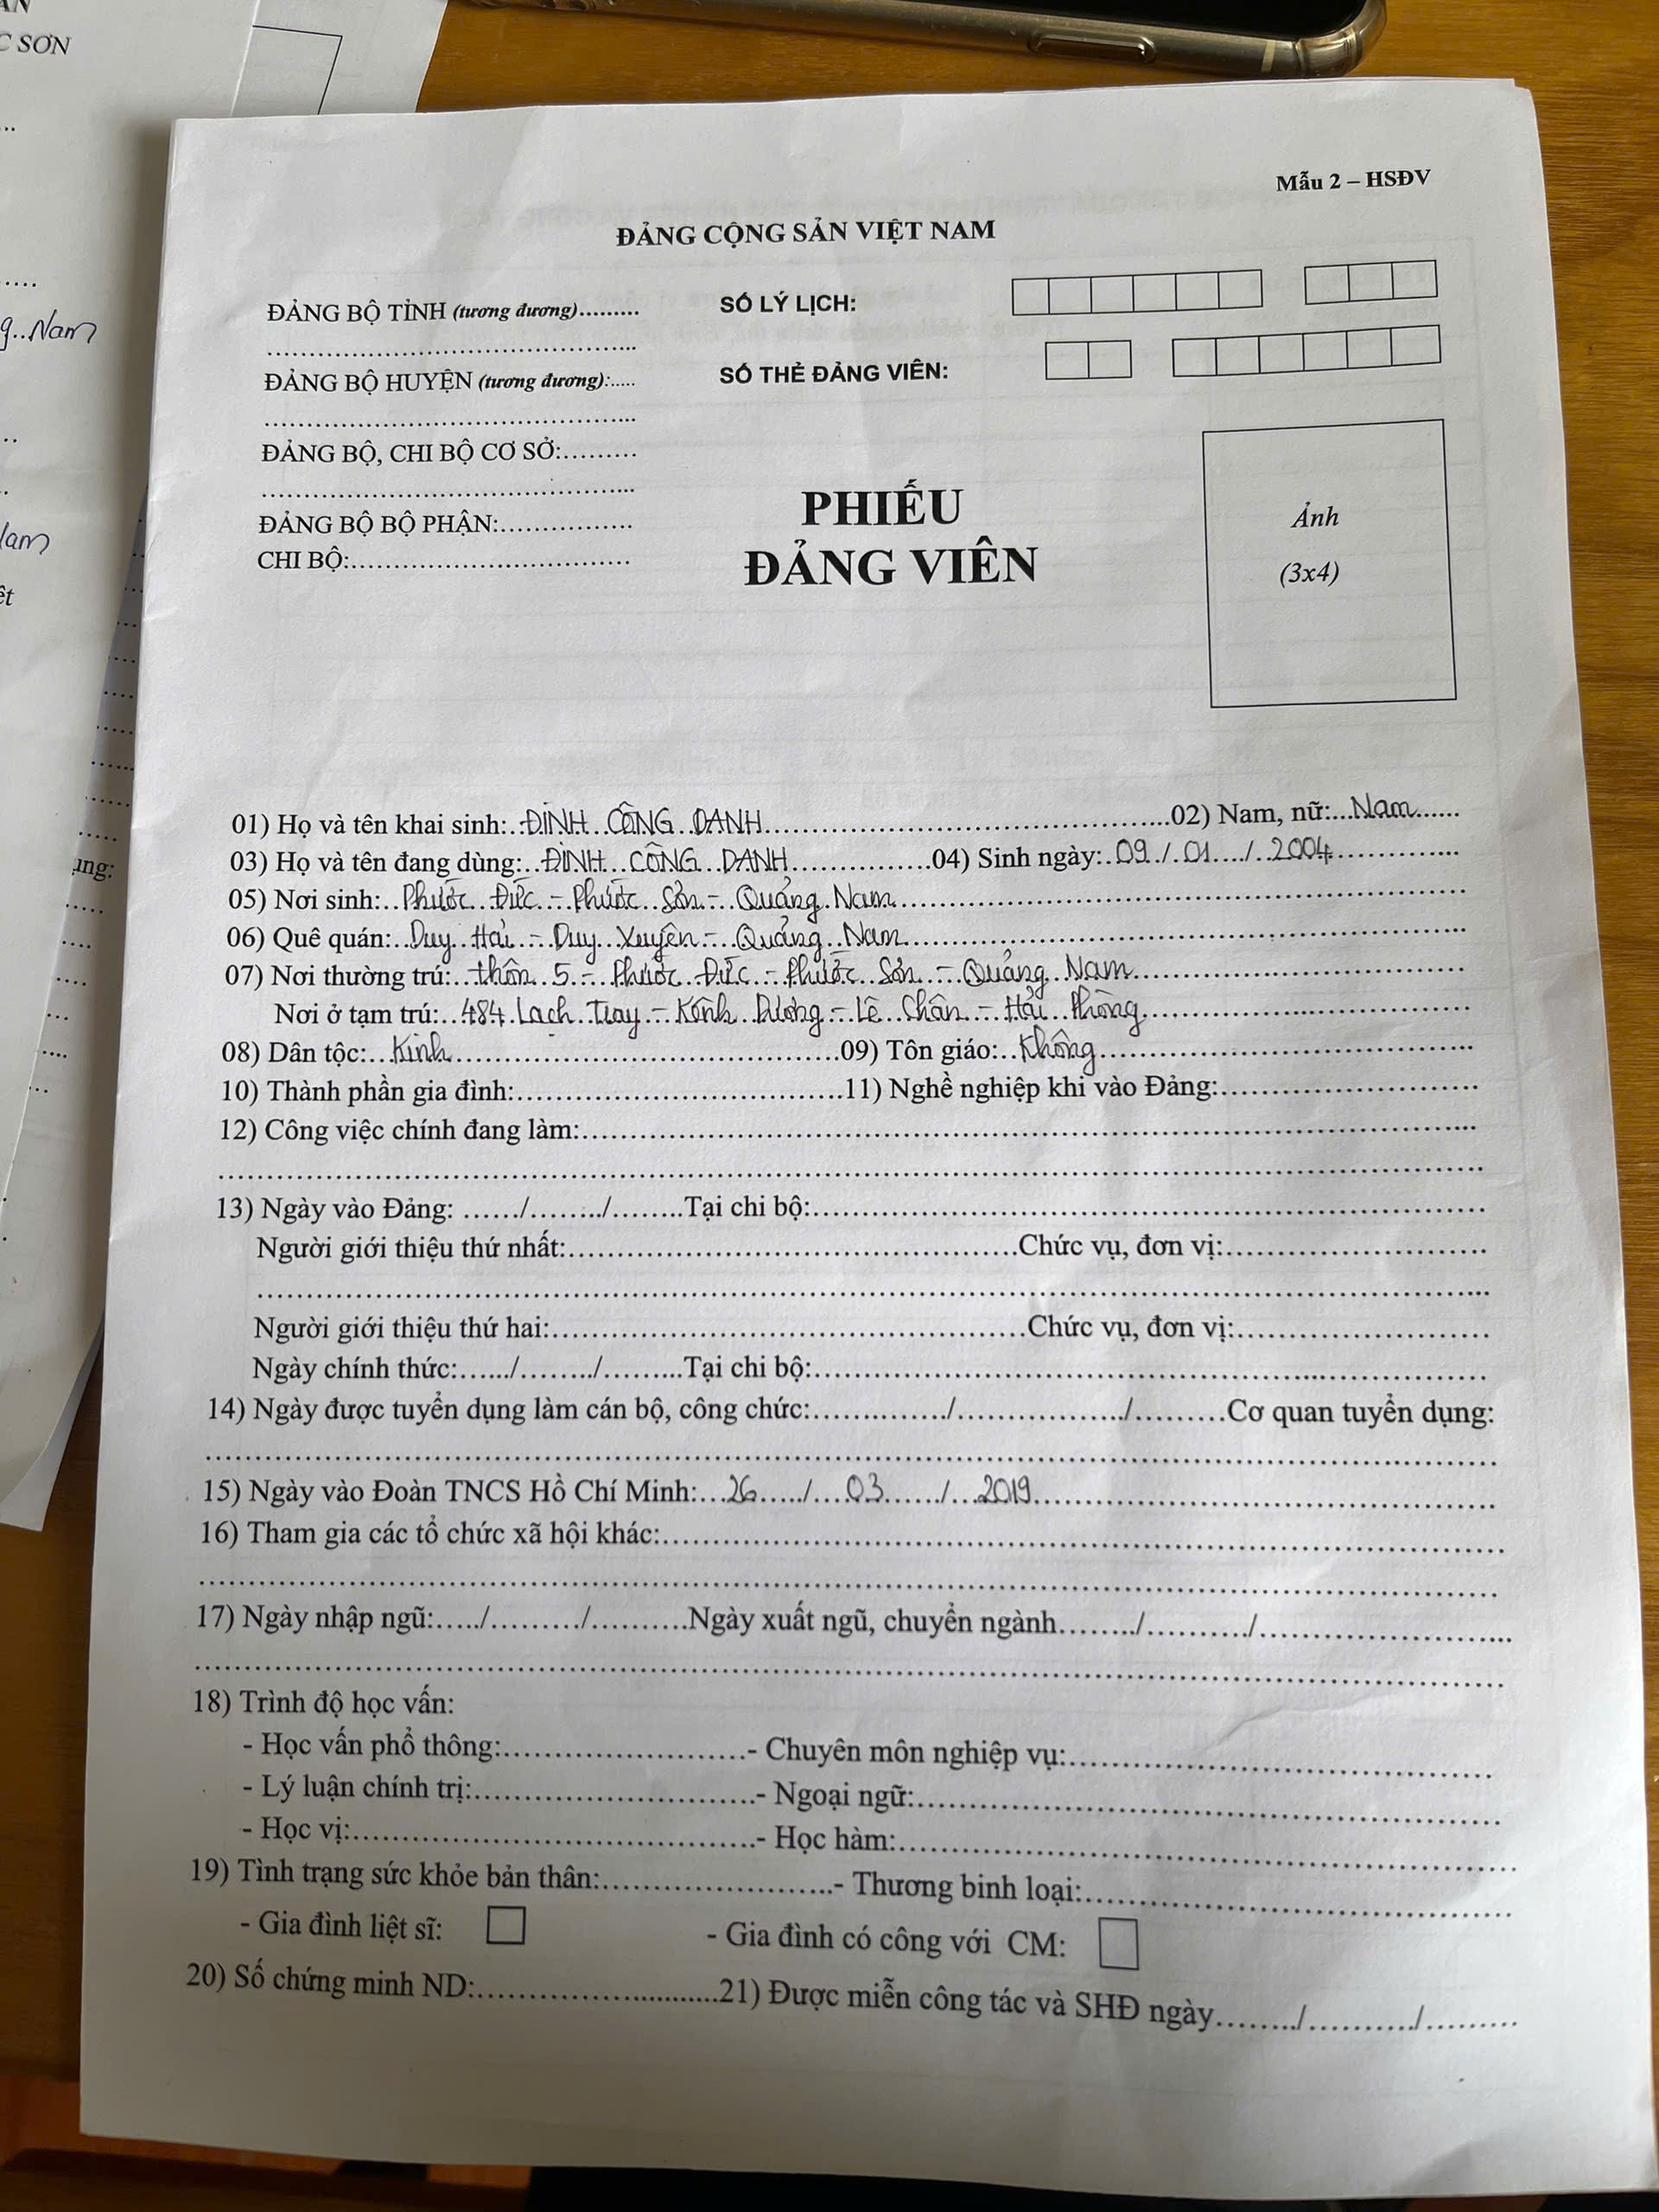 C SƠN
g..Nam
ung:
Mẫu 2 – HSĐV
ĐẢNG CỘNG SẢN VIỆT NAM
ĐẢNG BỘ TỈNH (tương đương).........
SỐ LÝ LỊCH:
ĐẢNG BỘ HUYỆN (tương đương):.....
SỐ THẺ ĐẢNG VIÊN:
ĐẢNG BỘ, CHI BỘ CƠ SỞ:.........
ĐẢNG BỘ BỘ PHẬN:................
CHI BỘ:..................................
PHIẾU
ĐẢNG VIÊN
Ảnh
(3x4)
01) Họ và tên khai sinh: ĐINH CÔNG DANH 02) Nam, nữ: Nam
03) Họ và tên đang dùng: ĐINH CÔNG DANH 04) Sinh ngày: 09 / 01 / 2004
05) Nơi sinh: Phước Đức – Phước Sơn – Quảng Nam
06) Quê quán: Duy Hải – Duy Xuyên – Quảng Nam
07) Nơi thường trú: thôn 5 – Phước Đức – Phước Sơn – Quảng Nam
Nơi ở tạm trú: 484 Lạch Tray – Kênh Dương – Lê Chân – Hải Phòng
08) Dân tộc: Kinh 09) Tôn giáo: Không
10) Thành phần gia đình:..........11) Nghề nghiệp khi vào Đảng:..........
12) Công việc chính đang làm:..........
13) Ngày vào Đảng: ....../......../........Tại chi bộ:..........
Người giới thiệu thứ nhất:..........Chức vụ, đơn vị:..........
Người giới thiệu thứ hai:..........Chức vụ, đơn vị:..........
Ngày chính thức:....../......../.........Tại chi bộ:..........
14) Ngày được tuyển dụng làm cán bộ, công chức:........../........../.........Cơ quan tuyển dụng:
15) Ngày vào Đoàn TNCS Hồ Chí Minh: 26 / 03 / 2019
16) Tham gia các tổ chức xã hội khác:..........
17) Ngày nhập ngũ:...../........./..........Ngày xuất ngũ, chuyển ngành......../........../..........
18) Trình độ học vấn:
- Học vấn phổ thông:..........- Chuyên môn nghiệp vụ:..........
- Lý luận chính trị:..........- Ngoại ngữ:..........
- Học vị:..........- Học hàm:..........
19) Tình trạng sức khỏe bản thân:..........- Thương binh loại:..........
- Gia đình liệt sĩ: - Gia đình có công với CM:
20) Số chứng minh ND:..........21) Được miễn công tác và SHĐ ngày......../........../.........